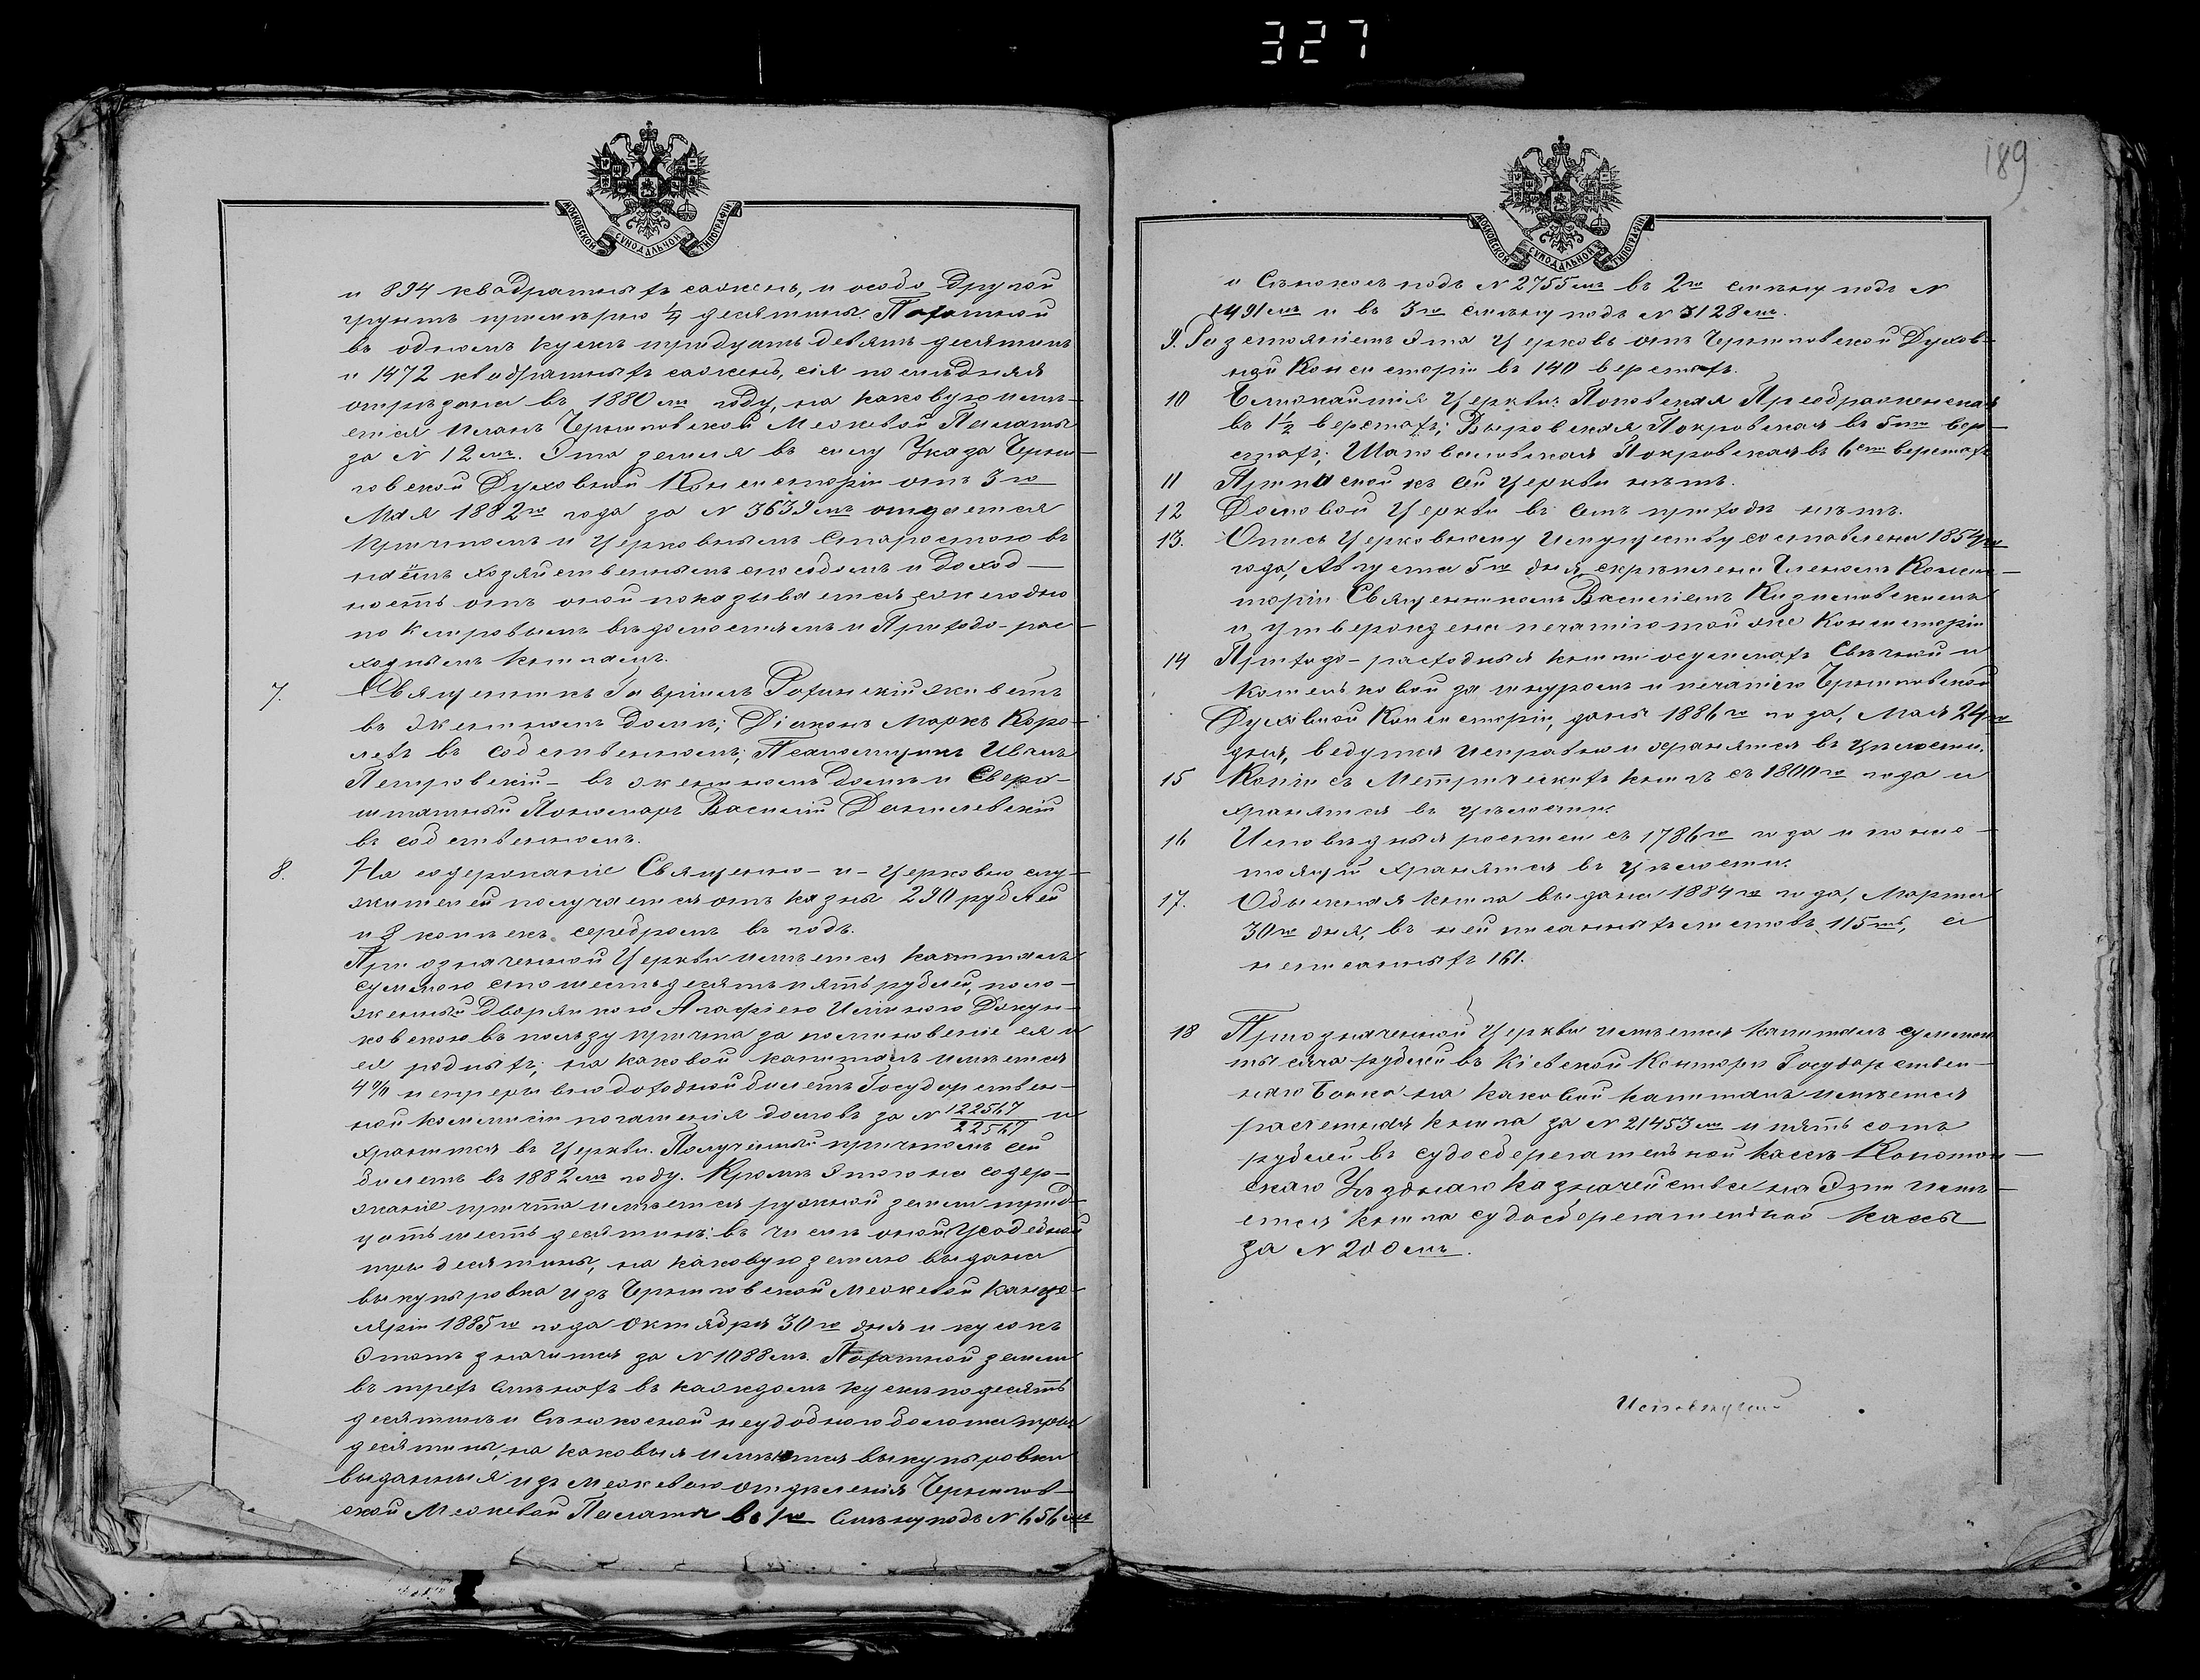 327
189
МОСКОВСКОЙ СУНОДАЛЬНОЙ ТИПОГРАФІИ
и 894 квадратныхъ сажень, и особо другой
грунтъ примѣрно 1/4 десятины. Пахатной
въ одномъ кускѣ тридцать девять десятинъ
и 1472 квадратныхъ сажень, сія послѣдняя
отрѣзана въ 1880мъ году, на каковую имѣ-
ется планъ Черниговской Межевой Палаты
за N 12мъ. Эта земля въ силу Указа Черни-
говской Духовной Консисторіи отъ 3го
Мая 1882го года за N 3639мъ отдается
Причтомъ и Церковнымъ Старостою въ
наёмъ хозяйственнымъ способомъ и доход-
ность отъ оной показывается ежегодно
по Клировымъ вѣдомостямъ и Приходо-рас-
ходнымъ книгамъ.
7. Священникъ Гавріилъ Рохинскій живетъ
въ женномъ домѣ; Діаконъ Маркъ Коро-
левъ въ собственномъ; Псаломщикъ Иванъ
Петровскій - въ женномъ домѣ и Сверх-
штатный Пономарь Василій Данилевскій
въ собственномъ.
8. На содержаніе Священно-и-Церковно слу-
жителей получается отъ казны 290 рублей
и 8 копѣекъ серебромъ въ годъ.
При означенной Церкви имѣется капиталъ
суммою сто шестьдесятъ пять рублей, поло-
женный Дворянкою Агафіею
въ пользу причта за поминовеніе ея и
ея родныхъ; на каковой капиталъ имѣется
4% непрерывно доходной билетъ Государствен-
ной коммисіи погашенія долговъ за N 122567/22567 и
хранится въ Церкви. Полученный причтомъ сей
билетъ въ 1882мъ году. Кромѣ этого на содер-
жаніе причта имѣется ружной земли трид-
цать шесть десятинъ: въ числѣ оной Усадебной
три десятины, на каковую землю выдана
выкупировка изъ Черниговской Межевой Канце-
ляріи 1885го года Октября 30го дня и кусокъ
этотъ значится за N 1088мъ. Пахатной земли
въ трехъ смѣнахъ въ каждомъ кускѣ по десять
десятинъ и Сѣнокосной неудобного болота три
десятины, на каковыя имѣются выкупировки
выданныя изъ межеваго отдѣленія Чернигов-
ской Межевой Палаты въ 1ю смѣну подъ N 656мъ
и Сѣнокосъ подъ N 2755мъ въ 2ю смѣну подъ N
1491мъ и въ 3ю смѣну подъ N 3128мъ.
9. Разстояніемъ эта Церковь отъ Черниговской Духов-
ной Консисторіи въ 140 верстахъ.
10 Ближайшія Церкви: Поповская Преображенская
въ 1 1/2 верстахъ; Выровская Покровская въ 5ти вер-
стахъ; Шаповаловская Покровская въ 6ти верстахъ
11 Приписной къ сей Церкви нѣтъ.
12 Домовой Церкви въ семъ приходѣ нѣтъ.
13. Опись Церковному Имуществу составлена 1854го
года, Августа 5го дня, скрѣплена Членомъ Конси-
сторіи Священникомъ Василіемъ
и утверждена печатью той же Консисторіи
14 Приходо-расходныя книги о суммахъ Свѣчной и
Кошельковой за шнуромъ и печатью Черниговской
Духовной Консисторіи, даны 1886го года, Мая 24го
дня, ведутся исправно и хранятся въ цѣлости.
15 Копіи съ Метрическихъ книгъ съ 1800го года и
хранятся въ цѣлости.
16 Исповѣдныя росписи съ 1786го года и по насто-
ящій хранятся въ цѣлости.
17. Обыскная книга выдана 1884го года, Марта
30го дня, въ ней писанныхъ листовъ 115ть, а
неписанныхъ 161.
18 При означенной Церкви имѣется капиталъ суммою
тысяча рублей въ Кіевской Конторѣ Государствен-
наго Банка на каковой капиталъ имѣется
расчетная книга за N 21453мъ и пять сотъ
рублей въ судосберегательной кассѣ Конотоп-
скаго Уѣзднаго Казначейства на эти имѣ-
ется книга судосберегательной кассы
за N 200мъ.